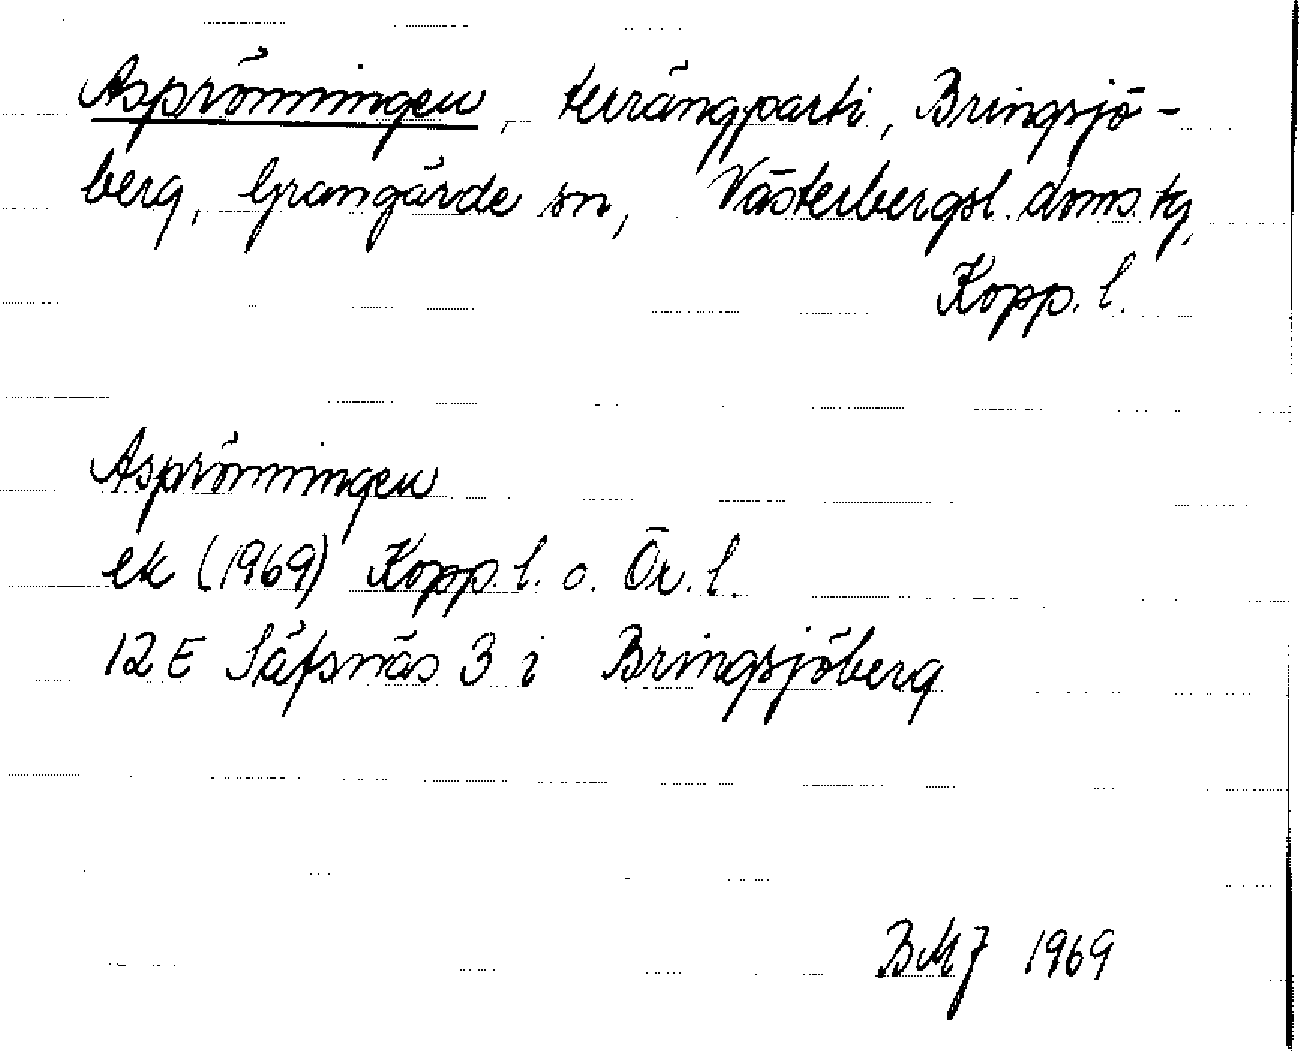 Asprönningen, terrängparti, Bringsjö-
berg, Grangärde sn, Västerbergsl. doms. tg,
Kopp. l.
Asprönningen
ek (1969) Kopp. l. o. Ör. l.
12 E Säfsnäs 3 i Bringsjöberg
BMJ 1969